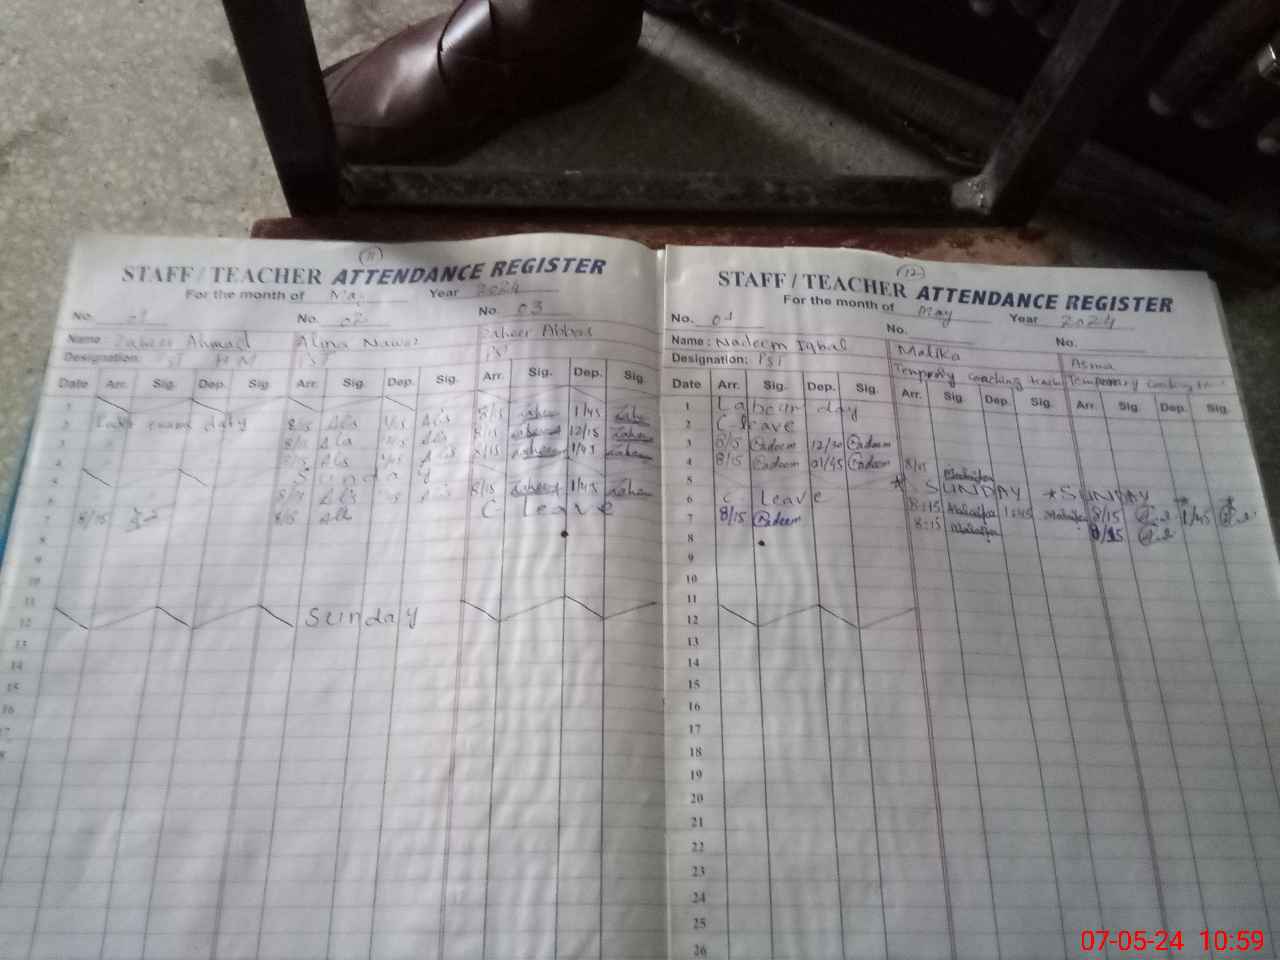 11
STAFF / TEACHER ATTENDANCE REGISTER
For the month of May Year 2024
No. 01 No. 02 No. 03
Name Zaheer Ahmad Alina Nawaz Zaheer Abbas
Designation: PST
Date Arr. Sig. Dep. Sig. Arr. Sig. Dep. Sig. Arr. Sig. Dep. Sig.
1
2 exams duty 8/15 Als Als 8/15 Zaheer 1/45 Zaheer
3 8/15 Als Als 8/15 Zaheer 12/15 Zaheer
4 8/15 Als Als 8/15 Zaheer 1/45 Zaheer
5 Sunday
6 8/15 Als Als 8/15 Zaheer 1/45 Zaheer
7 8/15 8/15 C leave
8
9
10
11
12 Sunday
13
14
15
16
17
12
STAFF / TEACHER ATTENDANCE REGISTER
For the month of May Year 2024
No. 04 No. No.
Name : Nadeem Iqbal Malika Asma
Designation: PST Temporary coaching Temporary
Date Arr. Sig. Dep. Sig. Arr. Sig. Dep. Sig. Arr. Sig. Dep. Sig.
1 Labour day
2 C leave
3 8/15 Nadeem 12/30 Nadeem
4 8/15 Nadeem 01/45 Nadeem 8/15 Malaika
5 * SUNDAY * SUNDAY
6 C Leave 8:15 Malaika 1:45 Malaika 8/15 1/45
7 8/15 Nadeem 8:15 Malaika 8/15
8
9
10
11
12
13
14
15
16
17
18
19
20
21
22
23
24
25
26
07-05-24 10:59